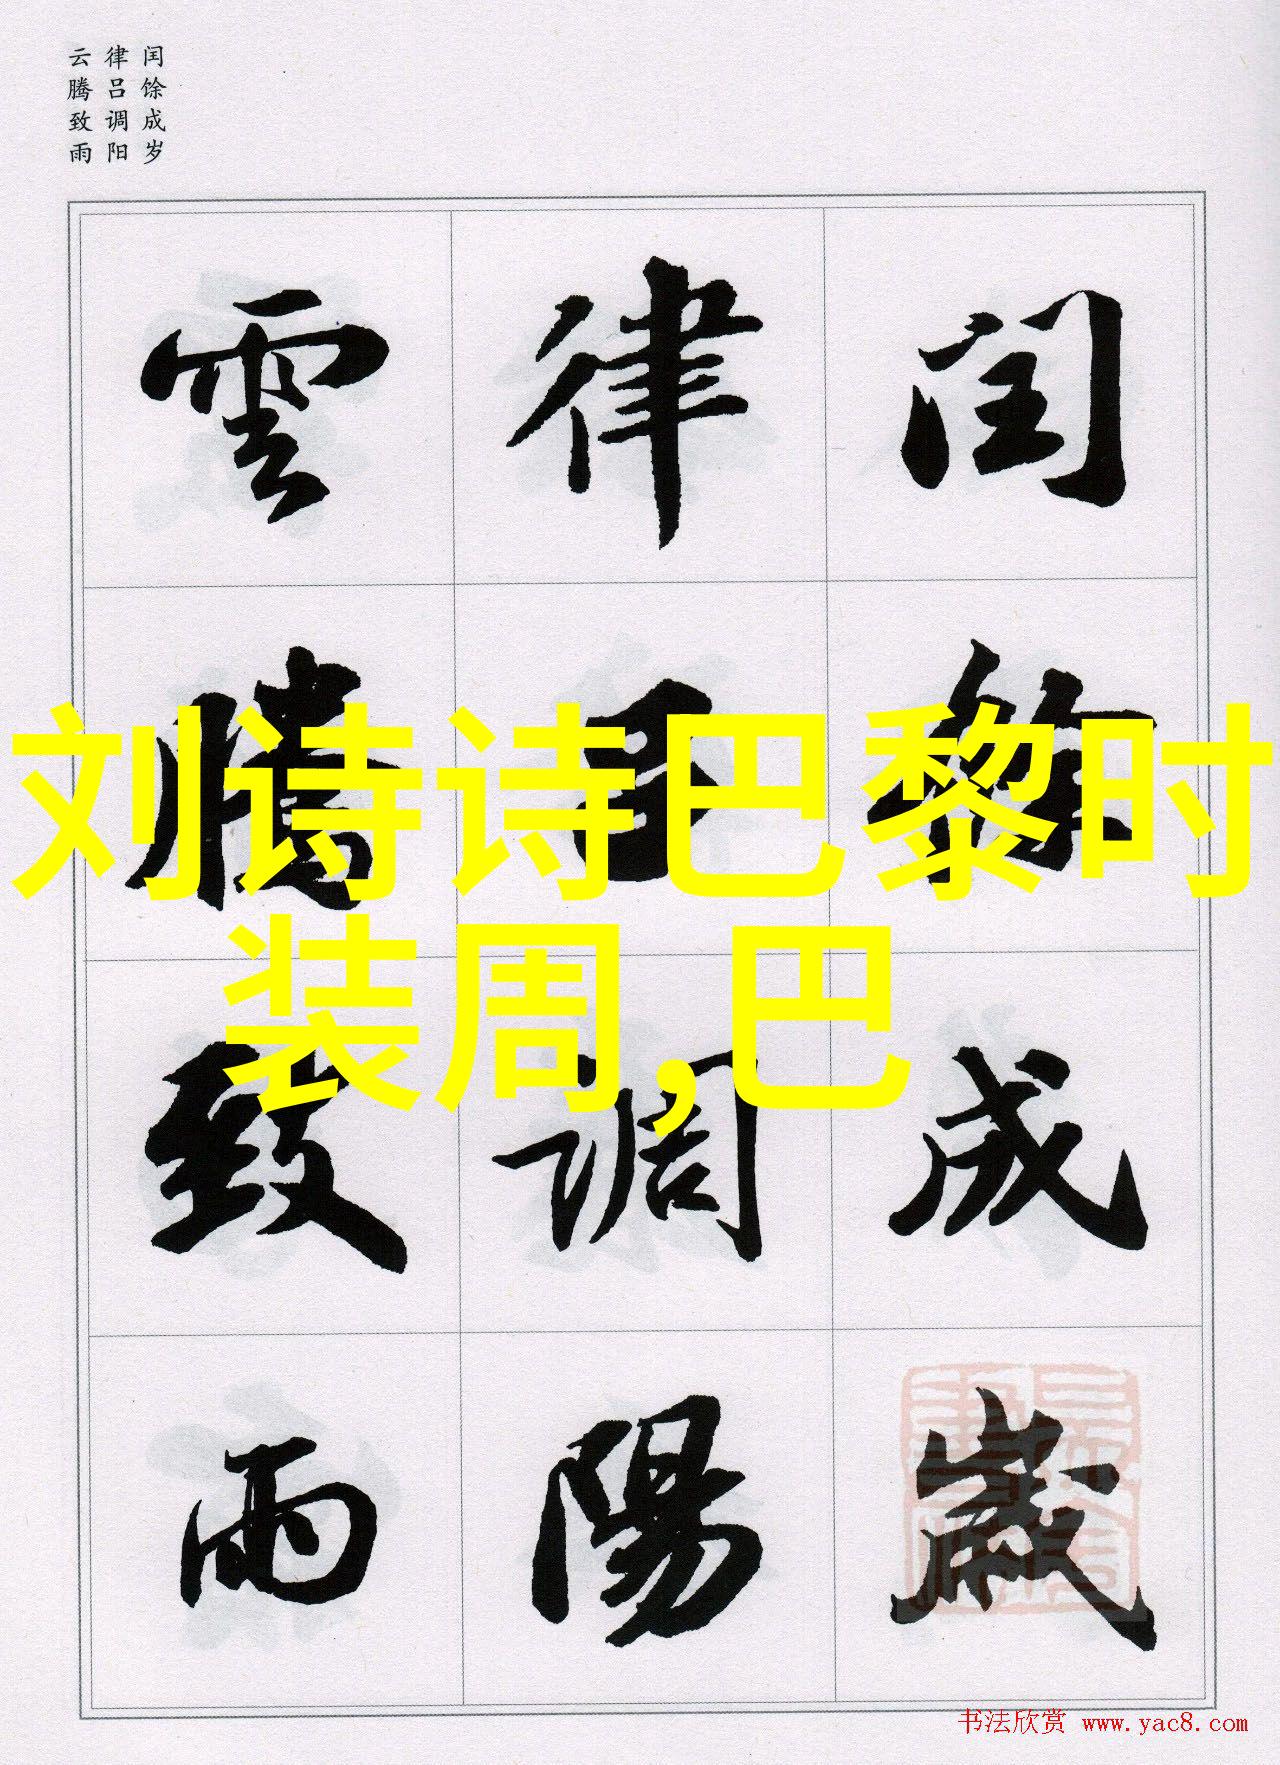 闰馀成岁
律吕调阳
云腾致雨
闰馀成歲
律吕调陽
雲騰致雨
刘诗诗巴黎时
装周,巴
书法欣赏 www.yac8.com